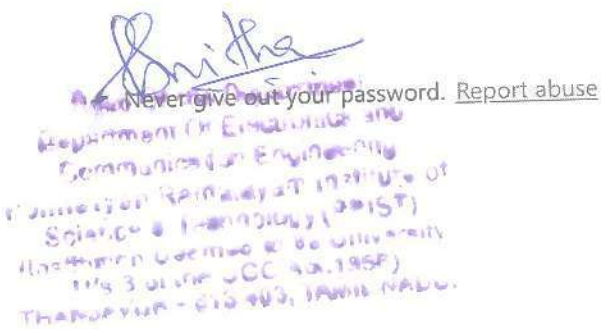 Snitha
Never give out your password. Report abuse
Department Of Electronics and
Communication Engineering
Institute of
Science & Technology (
to be University
U/s 3 of the UGC Act, 1956)
THANJAVUR - 613 403, TAMIL NADU.